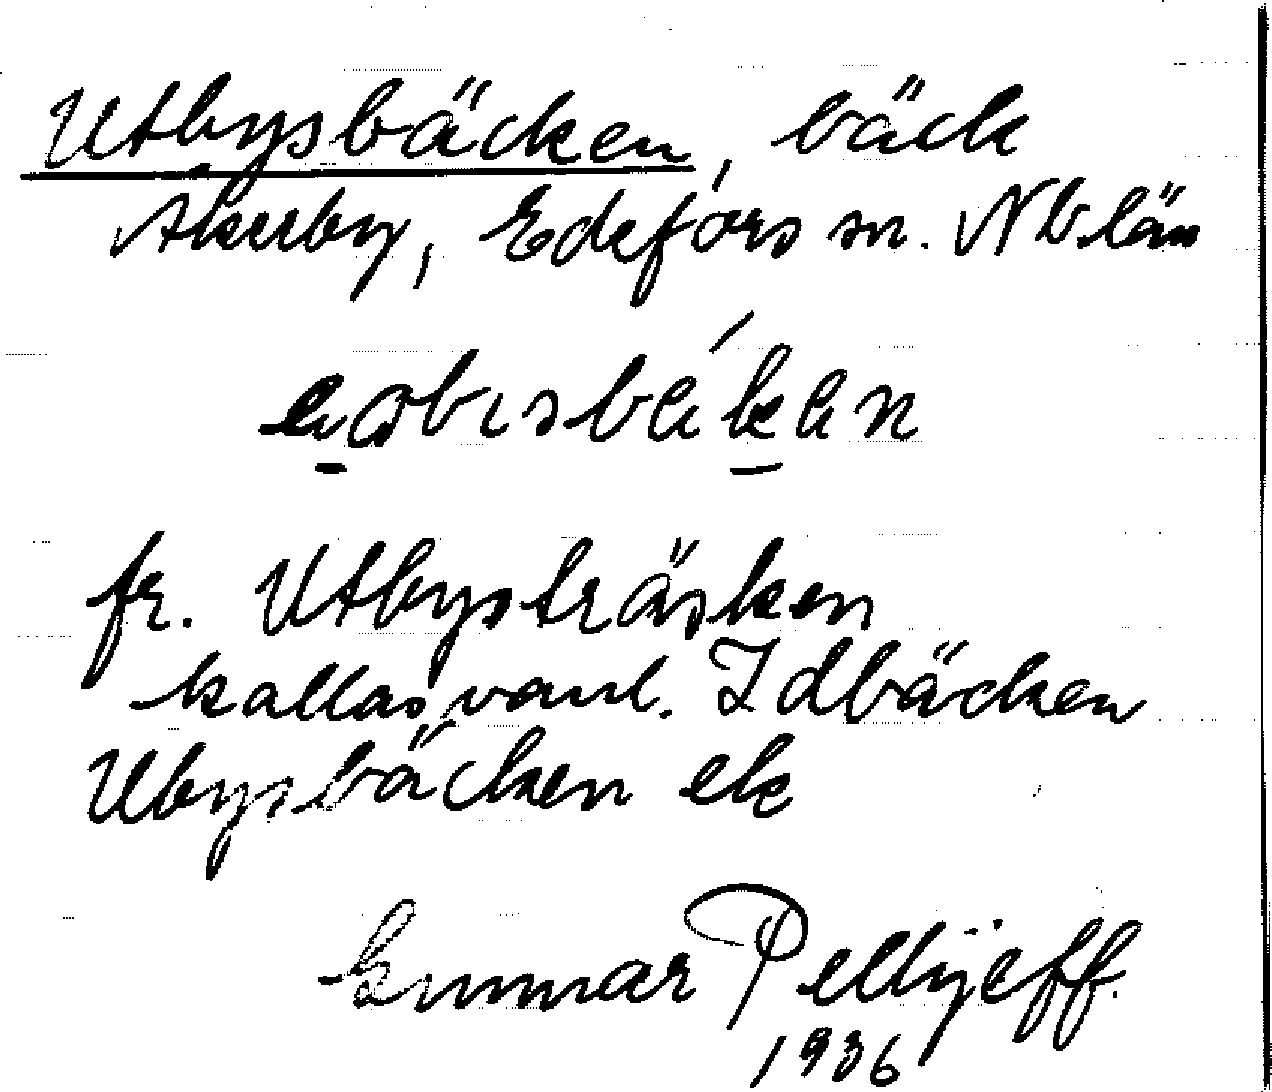 Utbysbäcken, bäck
Åkerby, Edefors sn. Nb. län
fr. Utbysträsken
kallas vanl. Idbäcken
Ubysbäcken
Gunnar Pellijeff.
1936